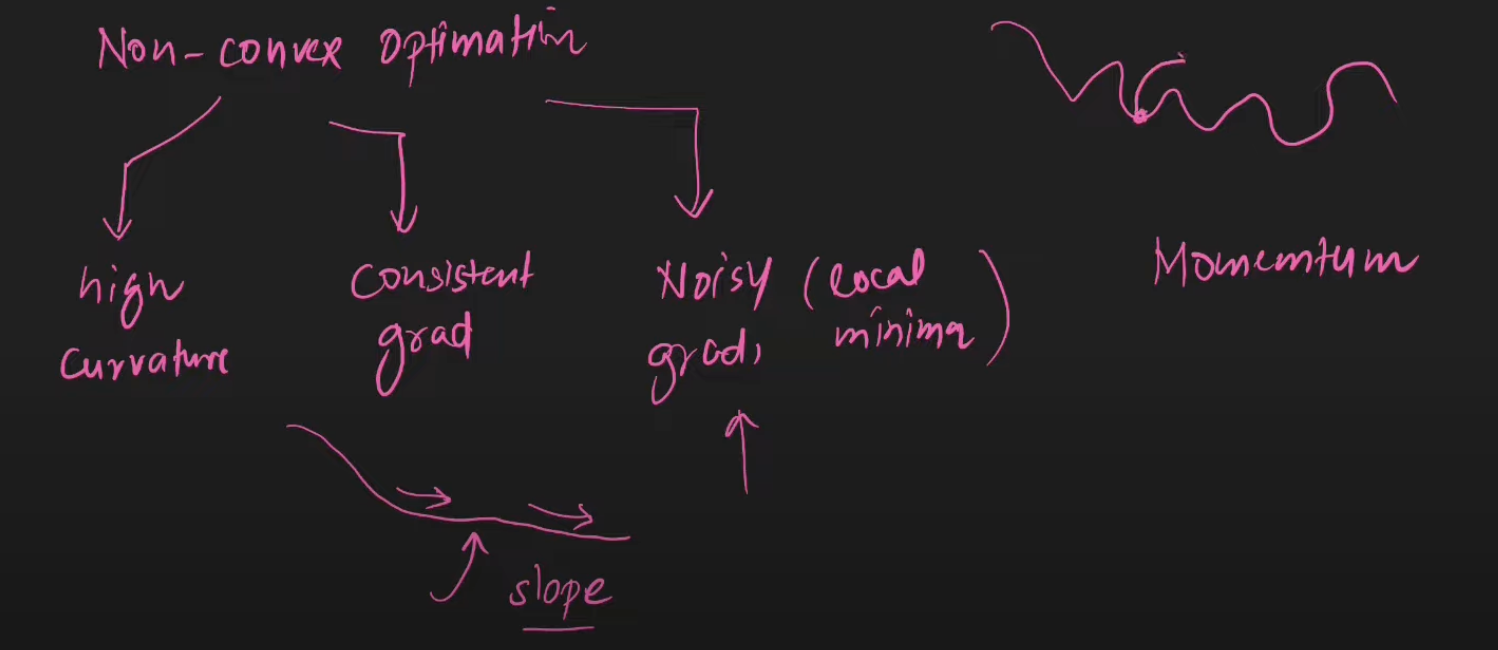 Non-convex Optimation
high
curvature
Consistent
grad
Noisy (local
minima)
grad,
Momemtum
slope